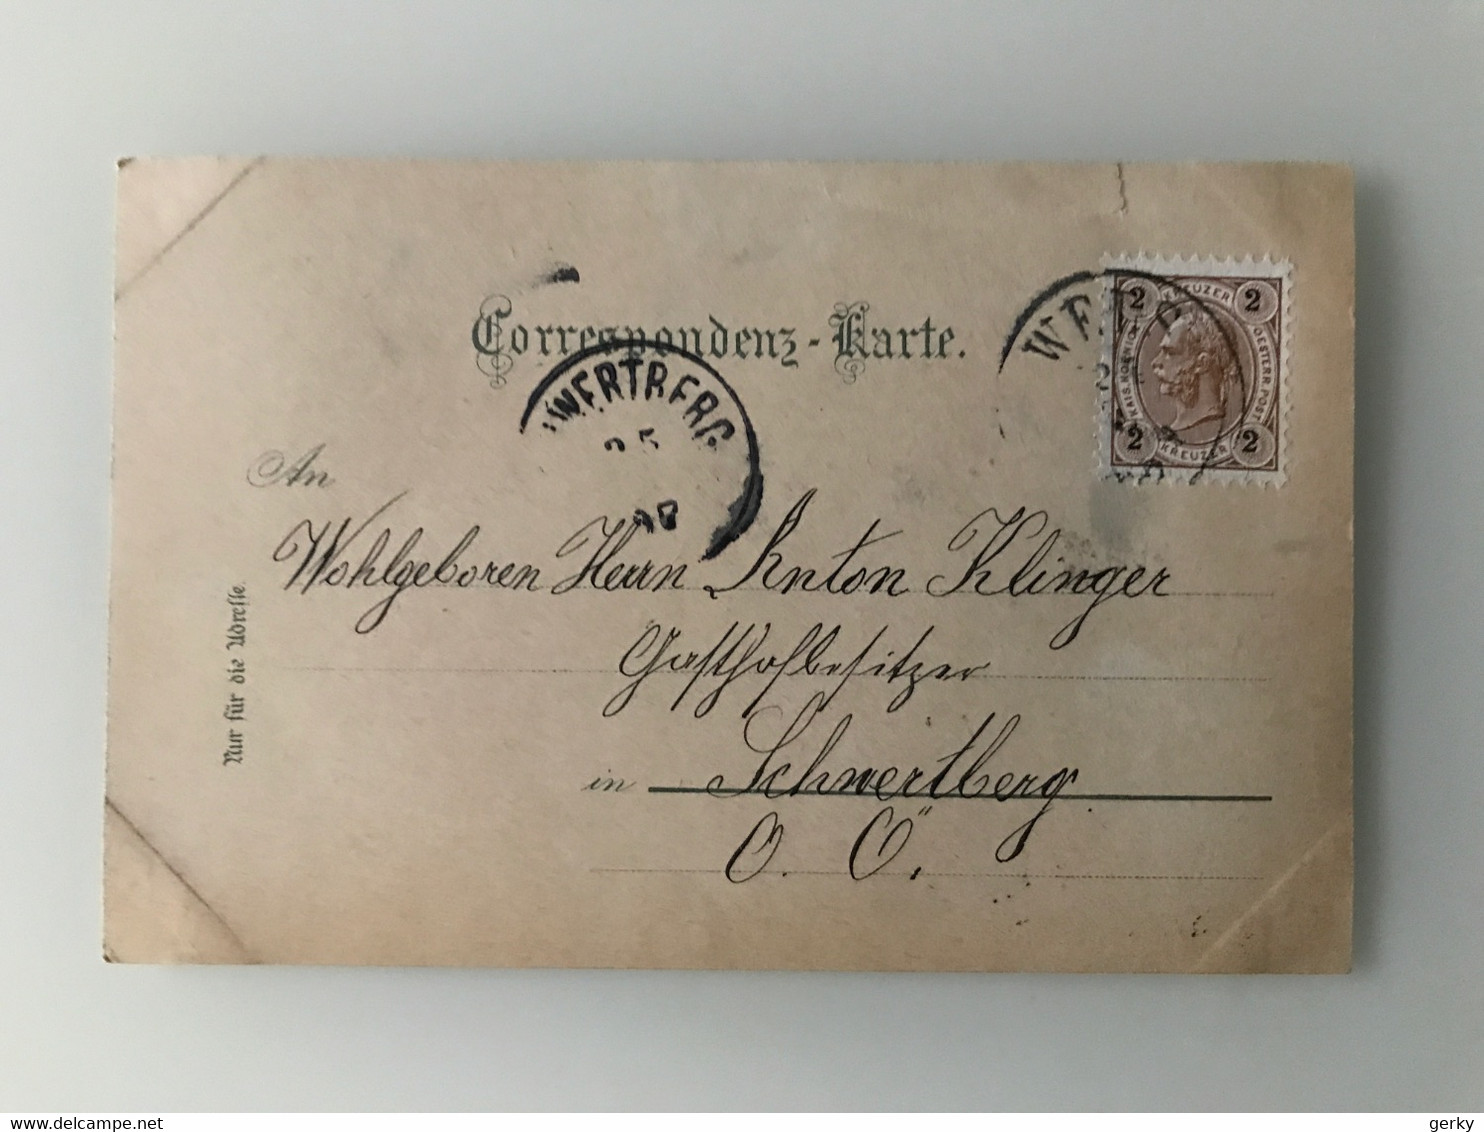 Correspondenz-Karte.
WERTBERG
25
97
2 KREUZER 2
KAIS. KOENIGL.
OESTERR. POST
2 KREUZER 2
An
Wohlgeboren Herrn Anton Klinger
Gasthofbesitzer
in Schwertberg
O. Ö.
Nur für die Adresse.
gerky